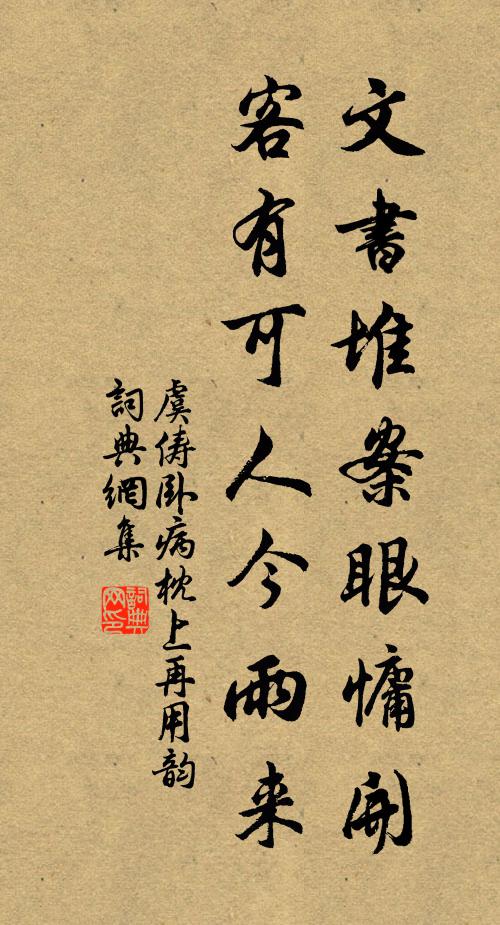 文書堆案眼慵開
客有可人今雨來
虞儔臥病枕上再用韵
詞典網集
詞典网印